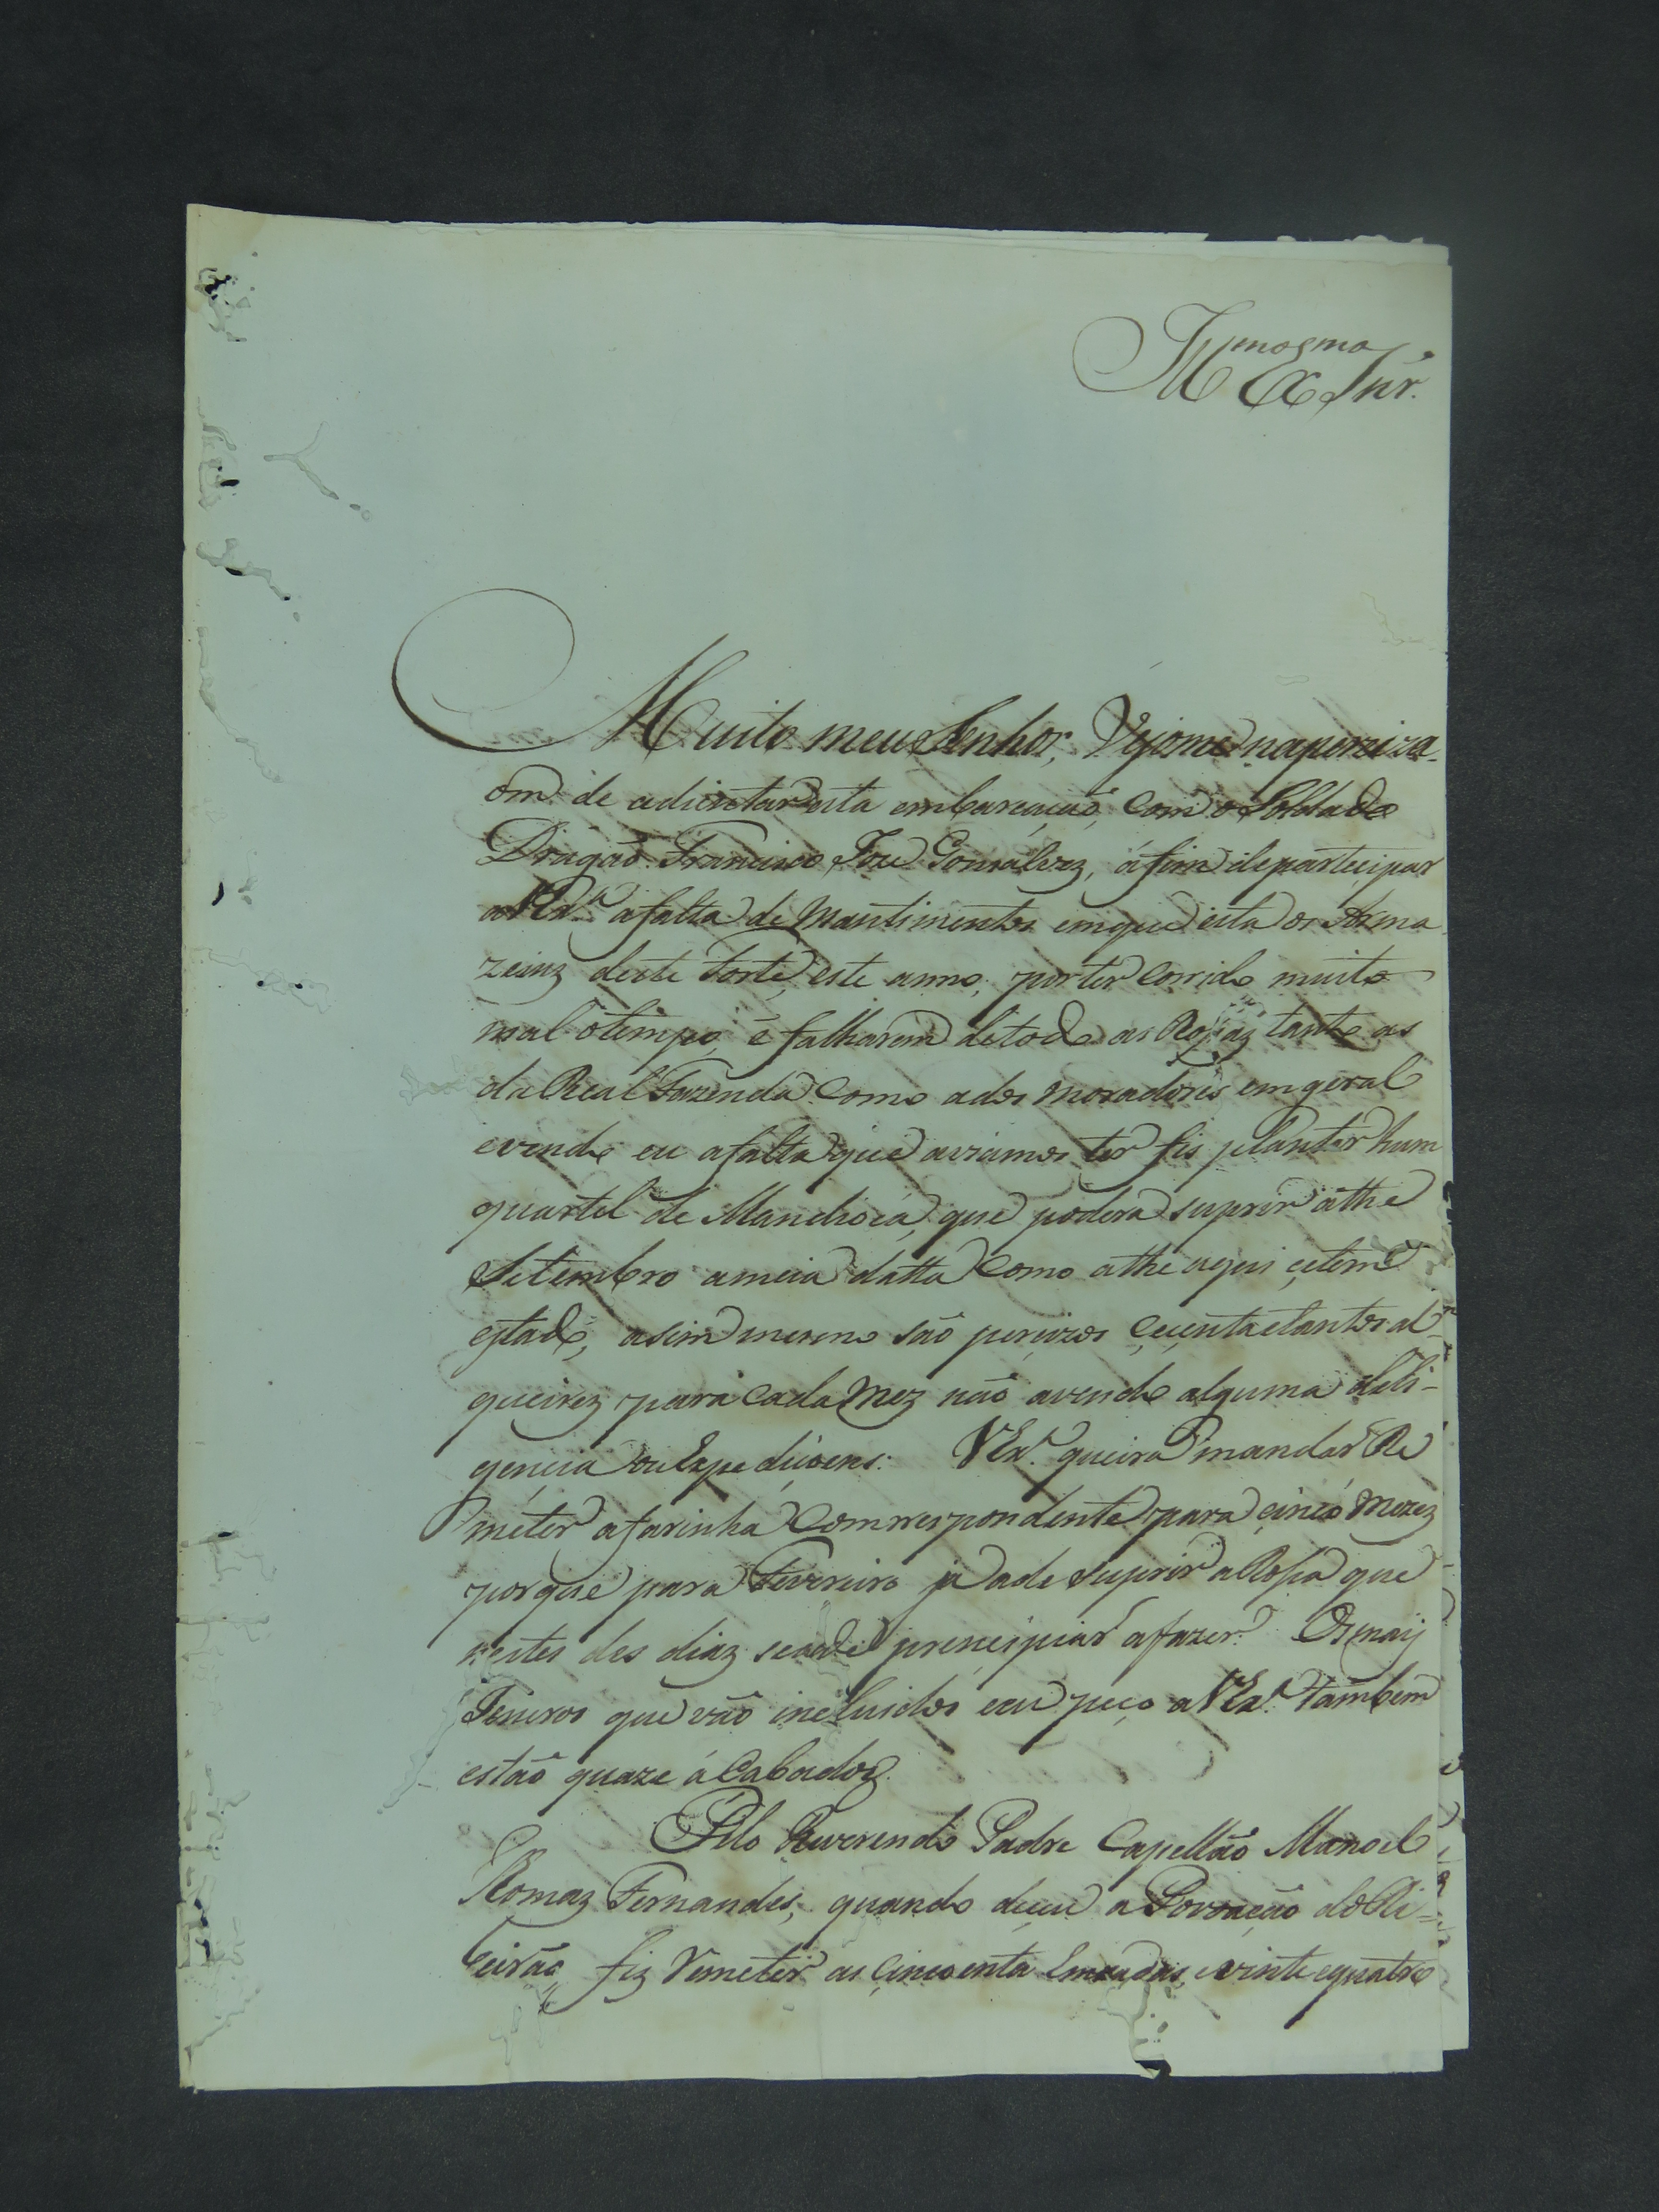 Illmo e Exmo Snr.
Muito meu Senhor, Vejome na perciza-
om de adientar esta embarcação, com o Soldado
Dragão Francisco Joze Gonsalvez, áfim departecipar
a VExa. afalta de Mantimentos emque esta os Arma
zeinz deste Forte, este anno, por ter Corrido muito
mal ótempo, é falharem detodo as Rossaz tanto as
da Real Fazenda como ados moradores emgeral
evendo eu afalta que aviamos ter fis plantar hum
quartel de Mandioca, que podera suprir athe
Setembro ameia datta como athe aqui çetem
estado, asim mesmo são percizos çecentaetantos al-
queirez para Cada Mez não avendo alguma deli-
gencia ou Expediçoens: VExa. queira mandar Re
meter afarinha Comrrespondente para çinco Mezez
porque para Fevereiro ja ade suprir aRossa que
nestes des diaz seade prencipiar afazer. Osmaiz
Jeneros que vão incluidos eeu peço a VExa. tambem
estão quaze á Cabados.
Pelo Reverendo Padre Capellão Manoel
Thomaz Fernandes, quando deçeu a Povoação do Ri-
beirão, fiz Remeter as çincoenta Enxadas, evinte equatro